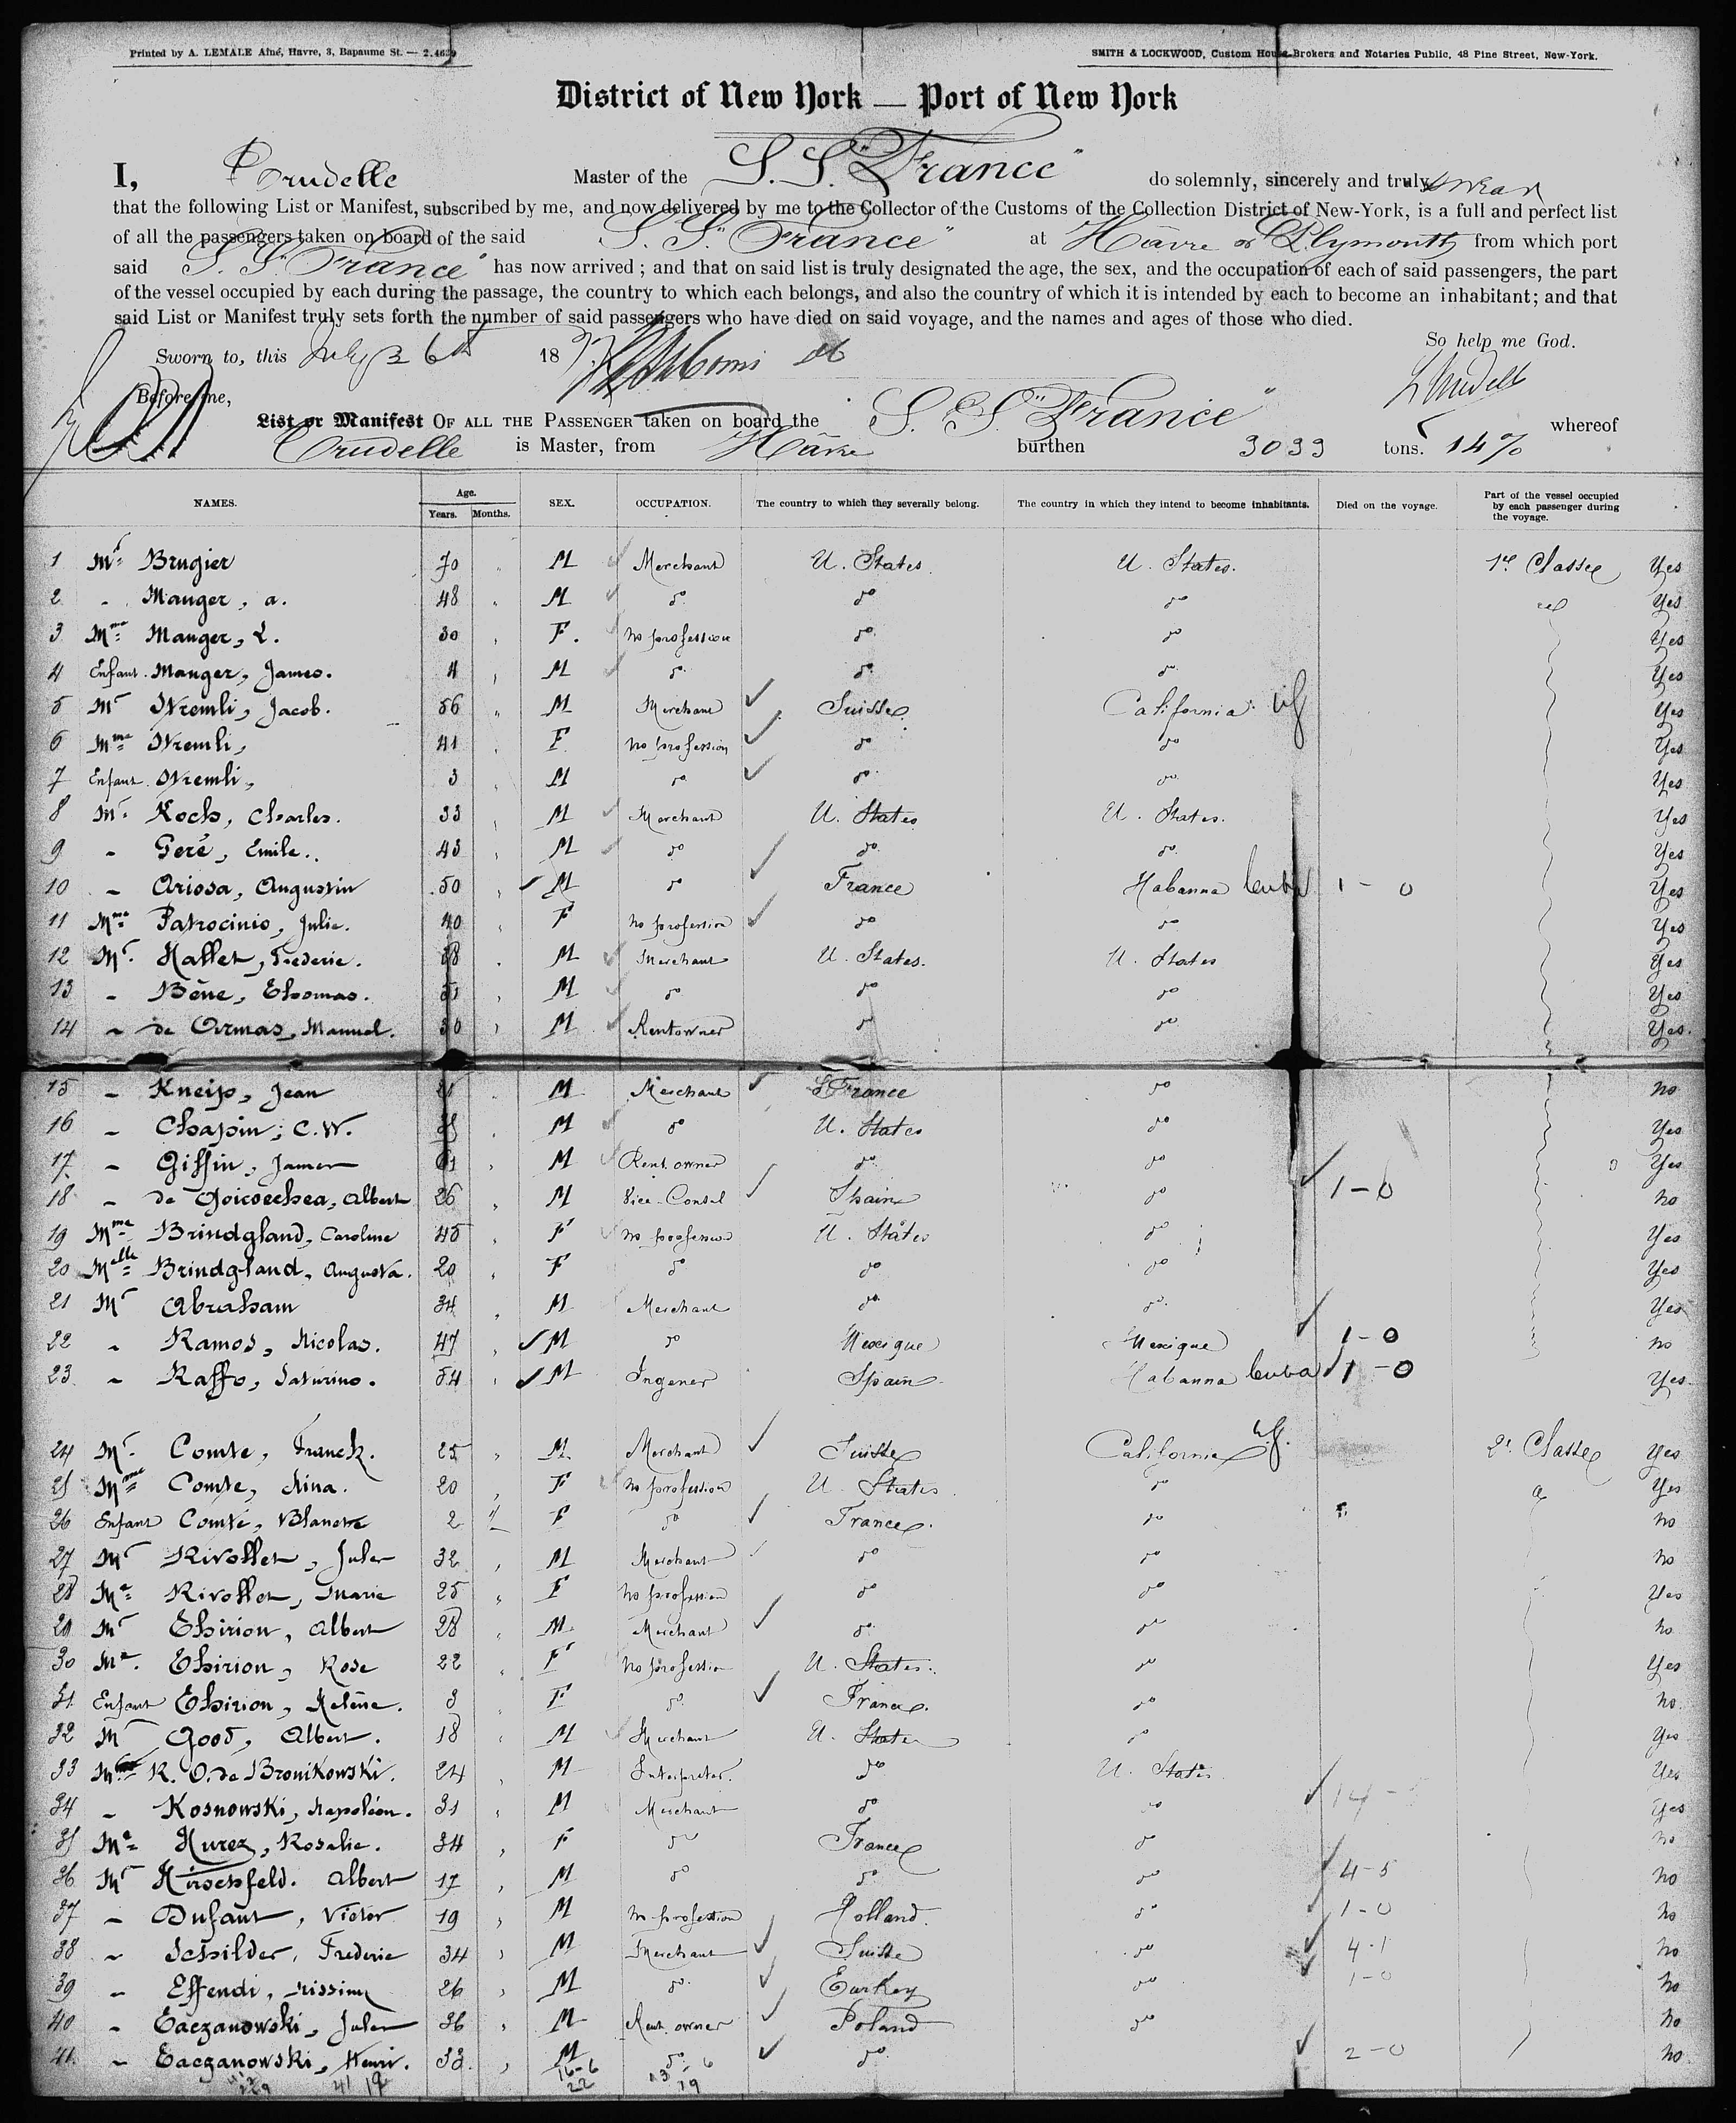 Printed by A. LEMALE Aîné, Havre, 3, Bapaume St. —
SMITH & LOCKWOOD, Custom House Brokers and Notaries Public, 48 Pine Street, New-York.
District of New York — Port of New York
I, Trudelle Master of the S. S. "France" do solemnly, sincerely and truly swear
that the following List or Manifest, subscribed by me, and now delivered by me to the Collector of the Customs of the Collection District of New-York, is a full and perfect list
of all the passengers taken on board of the said S. S. "France" at Hâvre or Plymouth from which port
said S. S. "France" has now arrived ; and that on said list is truly designated the age, the sex, and the occupation of each of said passengers, the part
of the vessel occupied by each during the passage, the country to which each belongs, and also the country of which it is intended by each to become an inhabitant; and that
said List or Manifest truly sets forth the number of said passengers who have died on said voyage, and the names and ages of those who died.
So help me God.
Sworn to, this July 26th 187
Trudelle
Before me,
List or Manifest OF ALL THE PASSENGER taken on board the S. S. "France" whereof
Trudelle is Master, from Hâvre burthen 3033 tons.
NAMES. Age. Years. Months. SEX. OCCUPATION. The country to which they severally belong. The country in which they intend to become inhabitants. Died on the voyage. Part of the vessel occupied by each passenger during the voyage.
1 Mr Brugier 70 " M Merchant U. States. U. States. 1re Classe Yes
2 - Manger, a. 48 " M do do do Yes
3 Mme Manger, L. 30 " F. no profession do do Yes
4 Enfant Manger, James. 4 " M do do do Yes
5 Mr Wremli, Jacob. 56 " M Merchant Suisse California Yes
6 Mme Wremli, 41 " F no profession do do Yes
7 Enfant Wremli, 3 " M do do do Yes
8 Mr Koch, Charles. 33 " M Merchant U. States U. States. Yes
9 - Geré, Emile. 43 " M do do do Yes
10 - Ariosa, Augustin 50 " M do France Habanna Cuba 1-0 Yes
11 Mme Patrocinio, Julie. 40 " F no profession do do Yes
12 Mr Hallet, Frederic. " M Merchant U. States. U. States Yes
13 - Bène, Thomas. " M do do do Yes
14 - de Armas, Manuel. 30 " M Rentowner do do Yes.
15 - Kneip, Jean " M Merchant France do no
16 - Chapin, C.W. " M do U. States do Yes
17 - Giffin, James 61 " M Rent owner do do Yes
18 - de Goicoechea, Albert 26 " M Vice-Consul Spain do 1-0 no
19 Mme Brindgland, Caroline 45 " F no profession U. States do Yes
20 Melle Brindgland, Augusta. 20 " F do do do Yes
21 Mr Abraham 34 " M Merchant do do Yes
22 - Ramos, Nicolas. 47 " M do Mexique Mexique 1-0 no
23 - Raffo, Saturino. 54 " M Ingener Spain Habanna Cuba 1-0 Yes
24 Mr Comte, Franck. 25 " M Merchant Suisse California 2e Classe Yes
25 Mme Comte, Nina. 20 " F no profession U. States do Yes
26 Enfant Comte, Blanche 2 " F do France do no
27 Mr Rivollet, Jules 32 " M Merchant do do no
28 Me Rivollet, Marie 25 " F no profession do do Yes
29 Mr Thirion, Albert 28 " M Merchant do do no
30 Me Thirion, Rose 22 " F no profession U. States do Yes
31 Enfant Thirion, Helène. 3 " F do France do no
32 Mr Good, Albert. 18 " M Merchant U. States do Yes
33 R. O. de Bronikowski. 24 " M Interpreter. do U. States Yes
34 - Kosnowski, Napoléon. 31 " M Merchant do do 14- Yes
35 Me Hurez, Rosalie. 34 " F do France do no
36 Mr Hirschfeld. Albert 17 " M do do do 4-5 no
37 - Dufaut, Victor 19 " M no profession Holland do 1-0 no
38 - Schilder, Frederic 34 " M Merchant Suisse do 4-1 no
39 - Effendi, Nissim 26 " M do Turkey do 1-0 no
40 - Taczanowski, Jules 36 " M Rent owner Poland do no
41 - Taczanowski, Henri. 33 " M do do 2-0 no
41 19 16-6 22 19